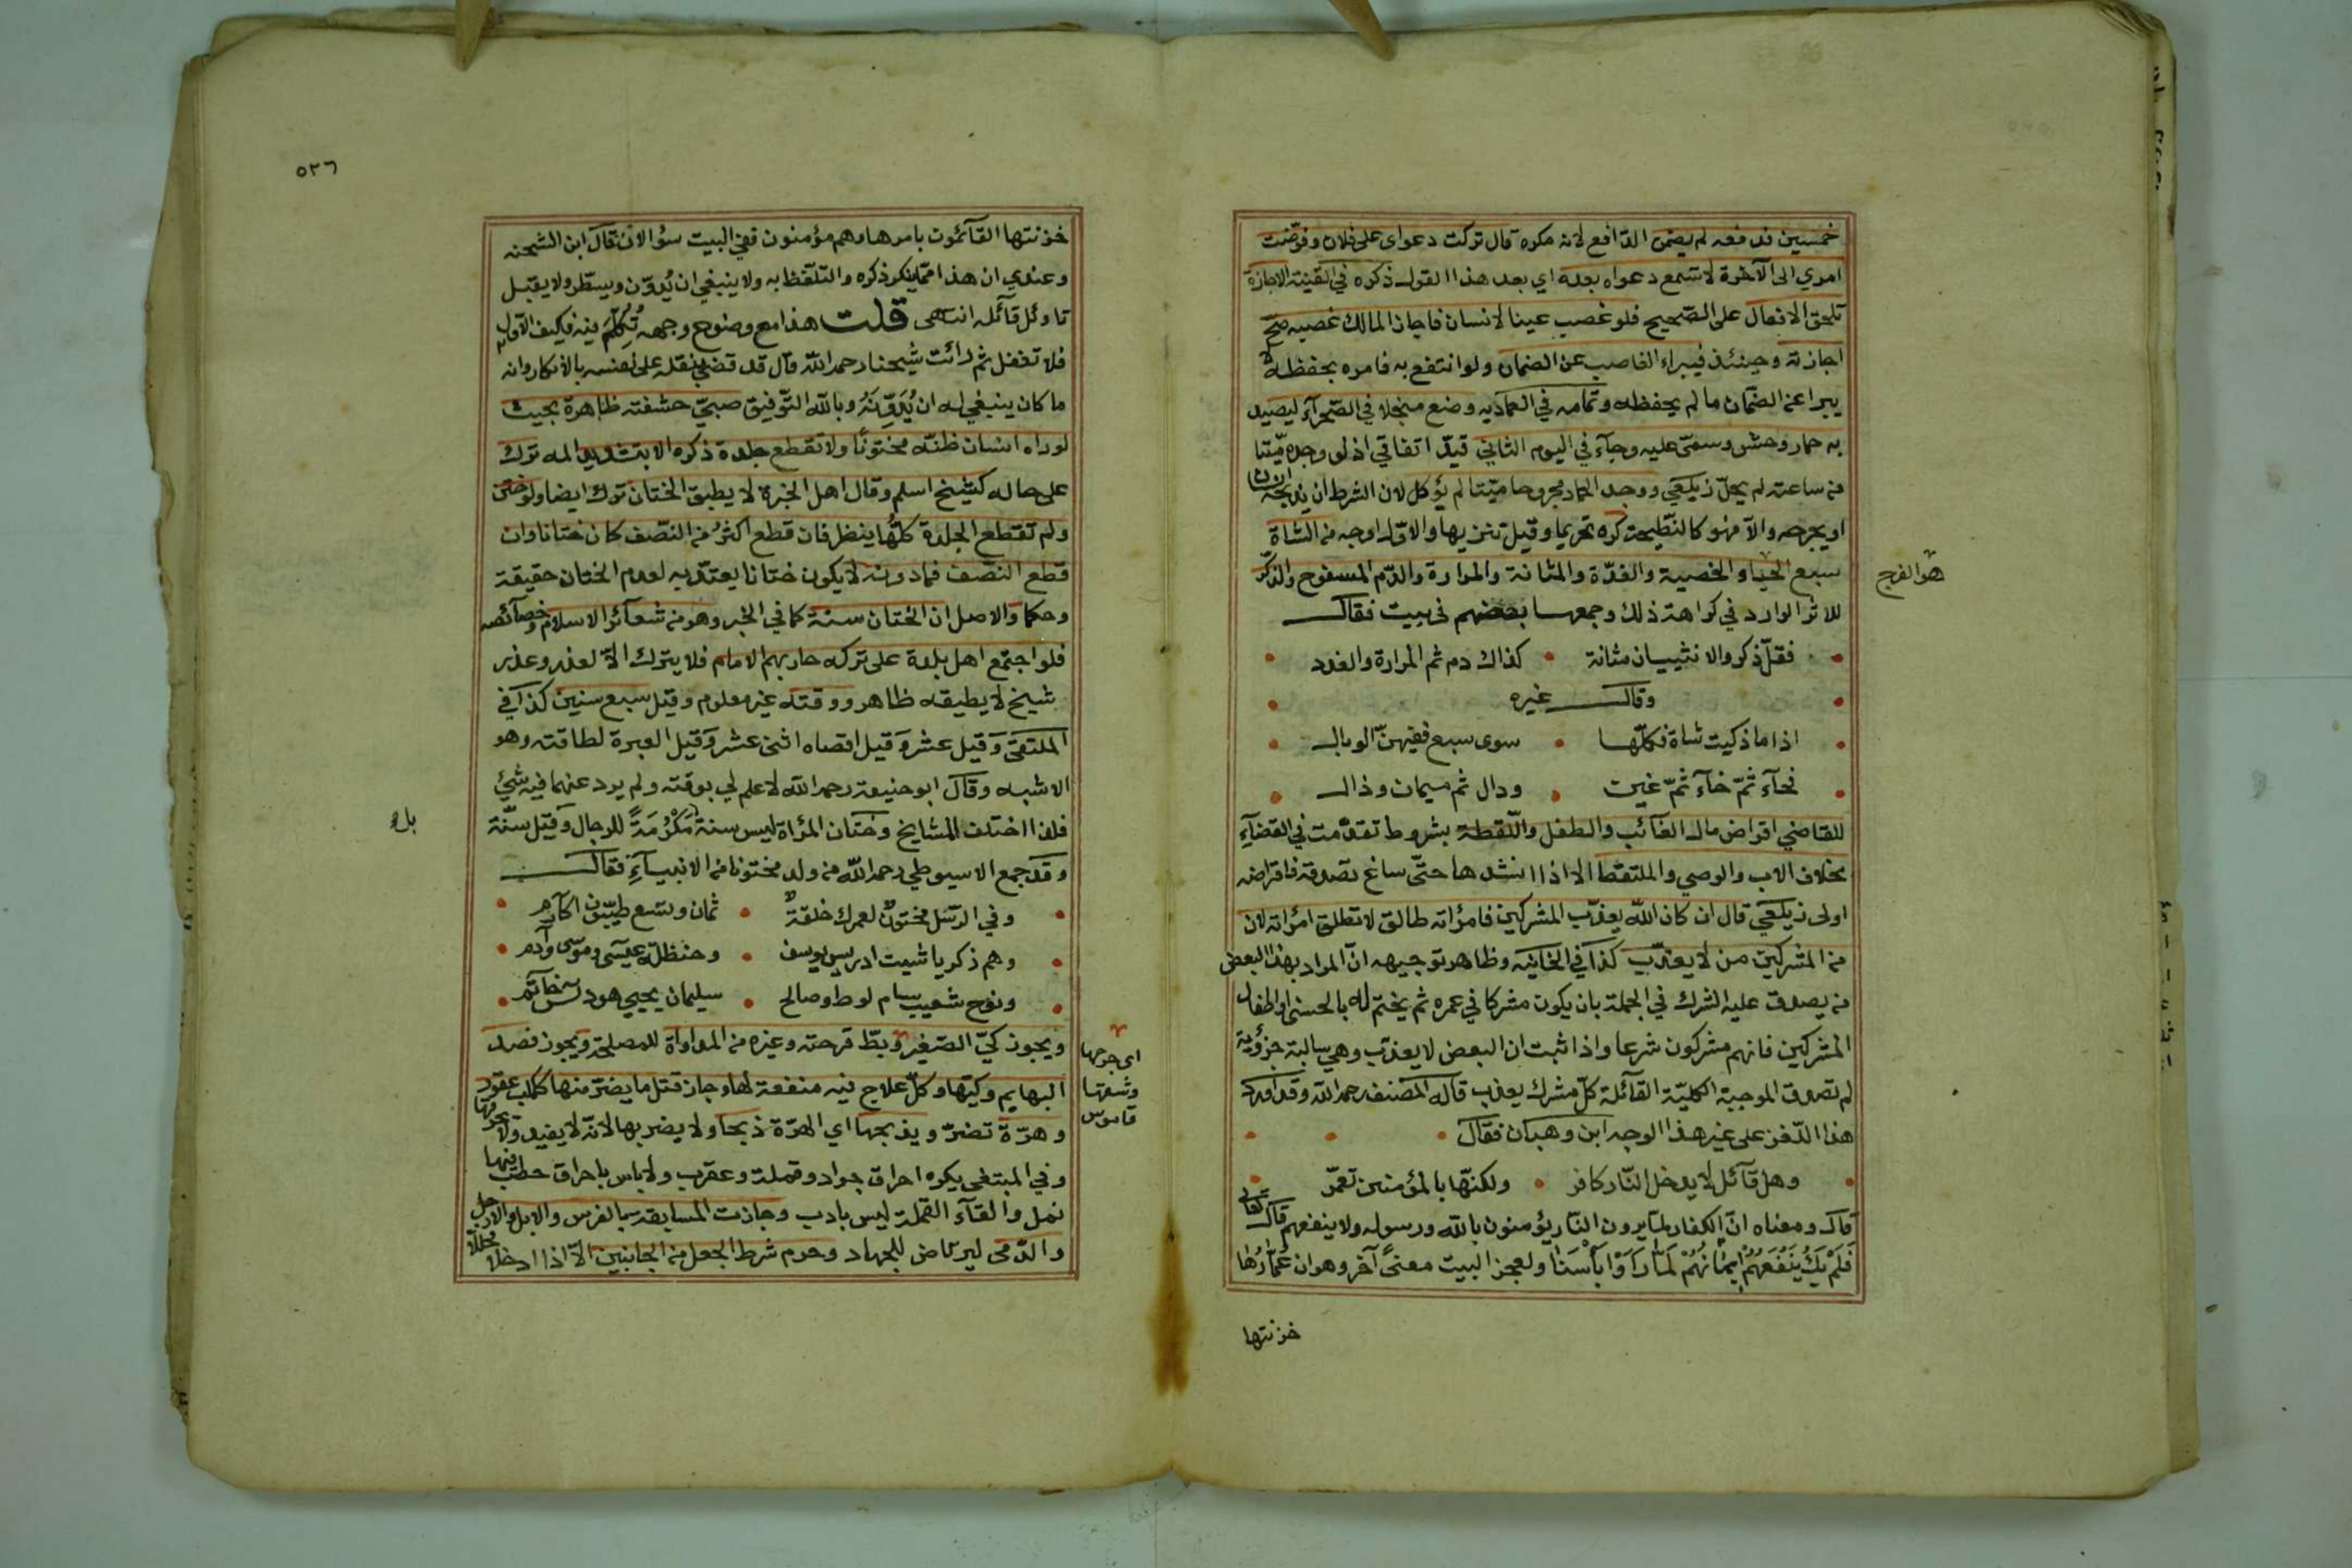 خمسين فدفعه لم يضمن الدافع لانه مكره قال تركت دعواى على فلان وفوّضت
امري الى الآخرة لا تسمع دعواه بعده اي بعد هذا القول ذكره في القنية الاجازة
تلحق الافعال على الصّحيح فلو غصب عينا لانسان فاجاز المالك غصبه صحّ
اجازته وحينئذ فيبراء الغاصب عن الضمان ولو انتفع به فامره بحفظه لا
يبرا عن الضمان ما لم يحفظه وتمامه في العماديه وضع منجلا في الصّحرآء ليصيد
به حمار وحش وسمّى عليه وجآء في اليوم الثاني قيد اتفاقي اذ لو وجده ميّتا
من ساعته لم يحلّ زيلعي ووجد الحمار مجروحا ميّتا لم يؤكل لان الشرط ان يذبحه الانسان
او يجرحه والآ فهو كالنّطيحة كره تحريما وقيل تنزيها والاوّل اوجه من الشاة
سبع الحياء والخصية والغدّة والمثانة والمرارة والدّم المسفوح والذّكر
هو الفرج
للاثر الوارد في كراهة ذلك وجمعها بعضهم في بيت فقال
فقل ذكر والانثييان مثانة كذاك دم ثم المرارة والغدد
وقال غيره
اذا ما ذكيت شاة فكلّها سوى سبع ففيهنّ الوبال
فحآء ثمّ خآء ثمّ غين ودال ثم ميمان وذال
للقاضي اقراض مال الغآئب والطفل واللّقطة بشروط تقدّمت في القضآء
بخلاف الاب والوصي والملتقط الا اذا انشدها حتّى ساغ تصدّقه فاقراضه
اولى زيلعي قال ان كان الله يعذّب المشركين فامرأته طالق لا تطلق امرأته لان
من المشركين من لا يعذّب كذا في الخانيه وظاهر توجيهه انّ المراد بهذا البعض
من يصدق عليه الشرك في الجملة بان يكون مشركا في عمره ثم يختم له بالحسنى او اطفال
المشركين فانهم مشركون شرعا واذا ثبت ان البعض لا يعذّب وهي سالبة جزؤية
لم تصدق الموجبة الكليّة القآئلة كلّ مشرك يعذب قاله المصنف رحمه الله وقد اورد
هذا اللّغز على غير هذا الوجه ابن وهبان فقال
وهل قآئل لا يدخل النّار كافر ولكنّها بالمؤمنين تعمّر
قال ومعناه انّ الكفار لمّا يرون النّار يؤمنون بالله ورسوله ولا ينفعهم قال تعالى
فَلَمْ يَكُ يَنْفَعُهُمْ اِيمَانُهُمْ لَمَّا رَاَوْا بَأْسَنَا ولعجز البيت معنًى آخر وهو ان عُمّارُها
خزنتها
٥٢٦
خزنتها القآئمون بامرها وهم مؤمنون ففي البيت سؤالان قال ابن الشحنه
وعندي ان هذا ممّا ينكر ذكره والتلفّظ به ولا ينبغي ان يُدوّن ويسطّر ولا يقبل
تاوئل قآئله انتهى قلت هذا مع وضوح وجهه تُكُلِّمَ فيه فكيف الآول
فلا تغفل ثم رائت شيخنا رحمه الله قال قد قضى بنقله على نفسه بالانكار وانه
ما كان ينبغي له ان يُدَوِّنَهُ وبالله التّوفيق صبيّ حشفته ظاهرة بحيث
لو راه انسان ظنّه مختونًا ولا تقطع جلدة ذكره الا بتشديد المه ترك
على حاله كشيخ اسلم وقال اهل الخبرة لا يطيق الختان ترك ايضا ولو ختن
ولم تقطع الجلدة كلّها ينظر فان قطع اكثرُ من النّصف كان ختانا وان
قطع النّصف فما دونه لا يكون ختانا يعتدّ به لعدم الختان حقيقة
وحكما والاصل ان الختان سنة كما في الخبر وهو من شعآئر الاسلام وخصآئصه
فلو اجتمع اهل بلدة على تركه حاربهم الامام فلا يترك الّا لعذر وعذر
شيخ لا يطيقه ظاهر ووقته غير معلوم وقيل سبع سنين كذا في
الملتقى وقيل عشر وقيل اقصاه اثنى عشر وقيل العبرة لطاقته وهو
الاشبه وقال ابو حنيفة رحمه الله لا علم لي بوقته ولم يرد عنهما فيه شيئ
فلذا اختلف المشايخ وختان المرأة ليس سنة مَكْرُمَةً للرجال وقيل سنّة
بل
وقد جمع الاسيوطي رحمه الله من ولد مختونا من الانبيآء فقال
وفي الرّسل مختونٌ لعمرك خلقةً ثمان وتسع طيّبون اكارم
وهم زكريا شيث ادريس يوسف وحنظلة عيسى وموسى وآدم
ونوح شعيب سام لوط وصالح سليمان يحيي هود يس خاتم
ويجوز كيّ الصّغير وبطّ قرحته وغيره من المداواة للمصلحة ويجوز فصد
اى جرحها
وشقها
قاموس
البهايم وكيّها وكلّ علاج فيه منفعة لها وجاز قتل ما يضرّ منها ككلب عقور
وهرّة تضرّ ويذبحها اي الهرّة ذبحا ولا يضربها لانّه لا يفيد ولا يحرقها
وفي المبتغى يكره احراق جراد وقملة وعقرب ولا باس باحراق حطب فيها
نمل والقآء القملة ليس بادب وجازت المسابقة بالفرس والابل والارجل
والرّمى ليرتاض للجهاد وحرم شرط الجعل من الجانبين الّا اذا ادخلا محلّلا